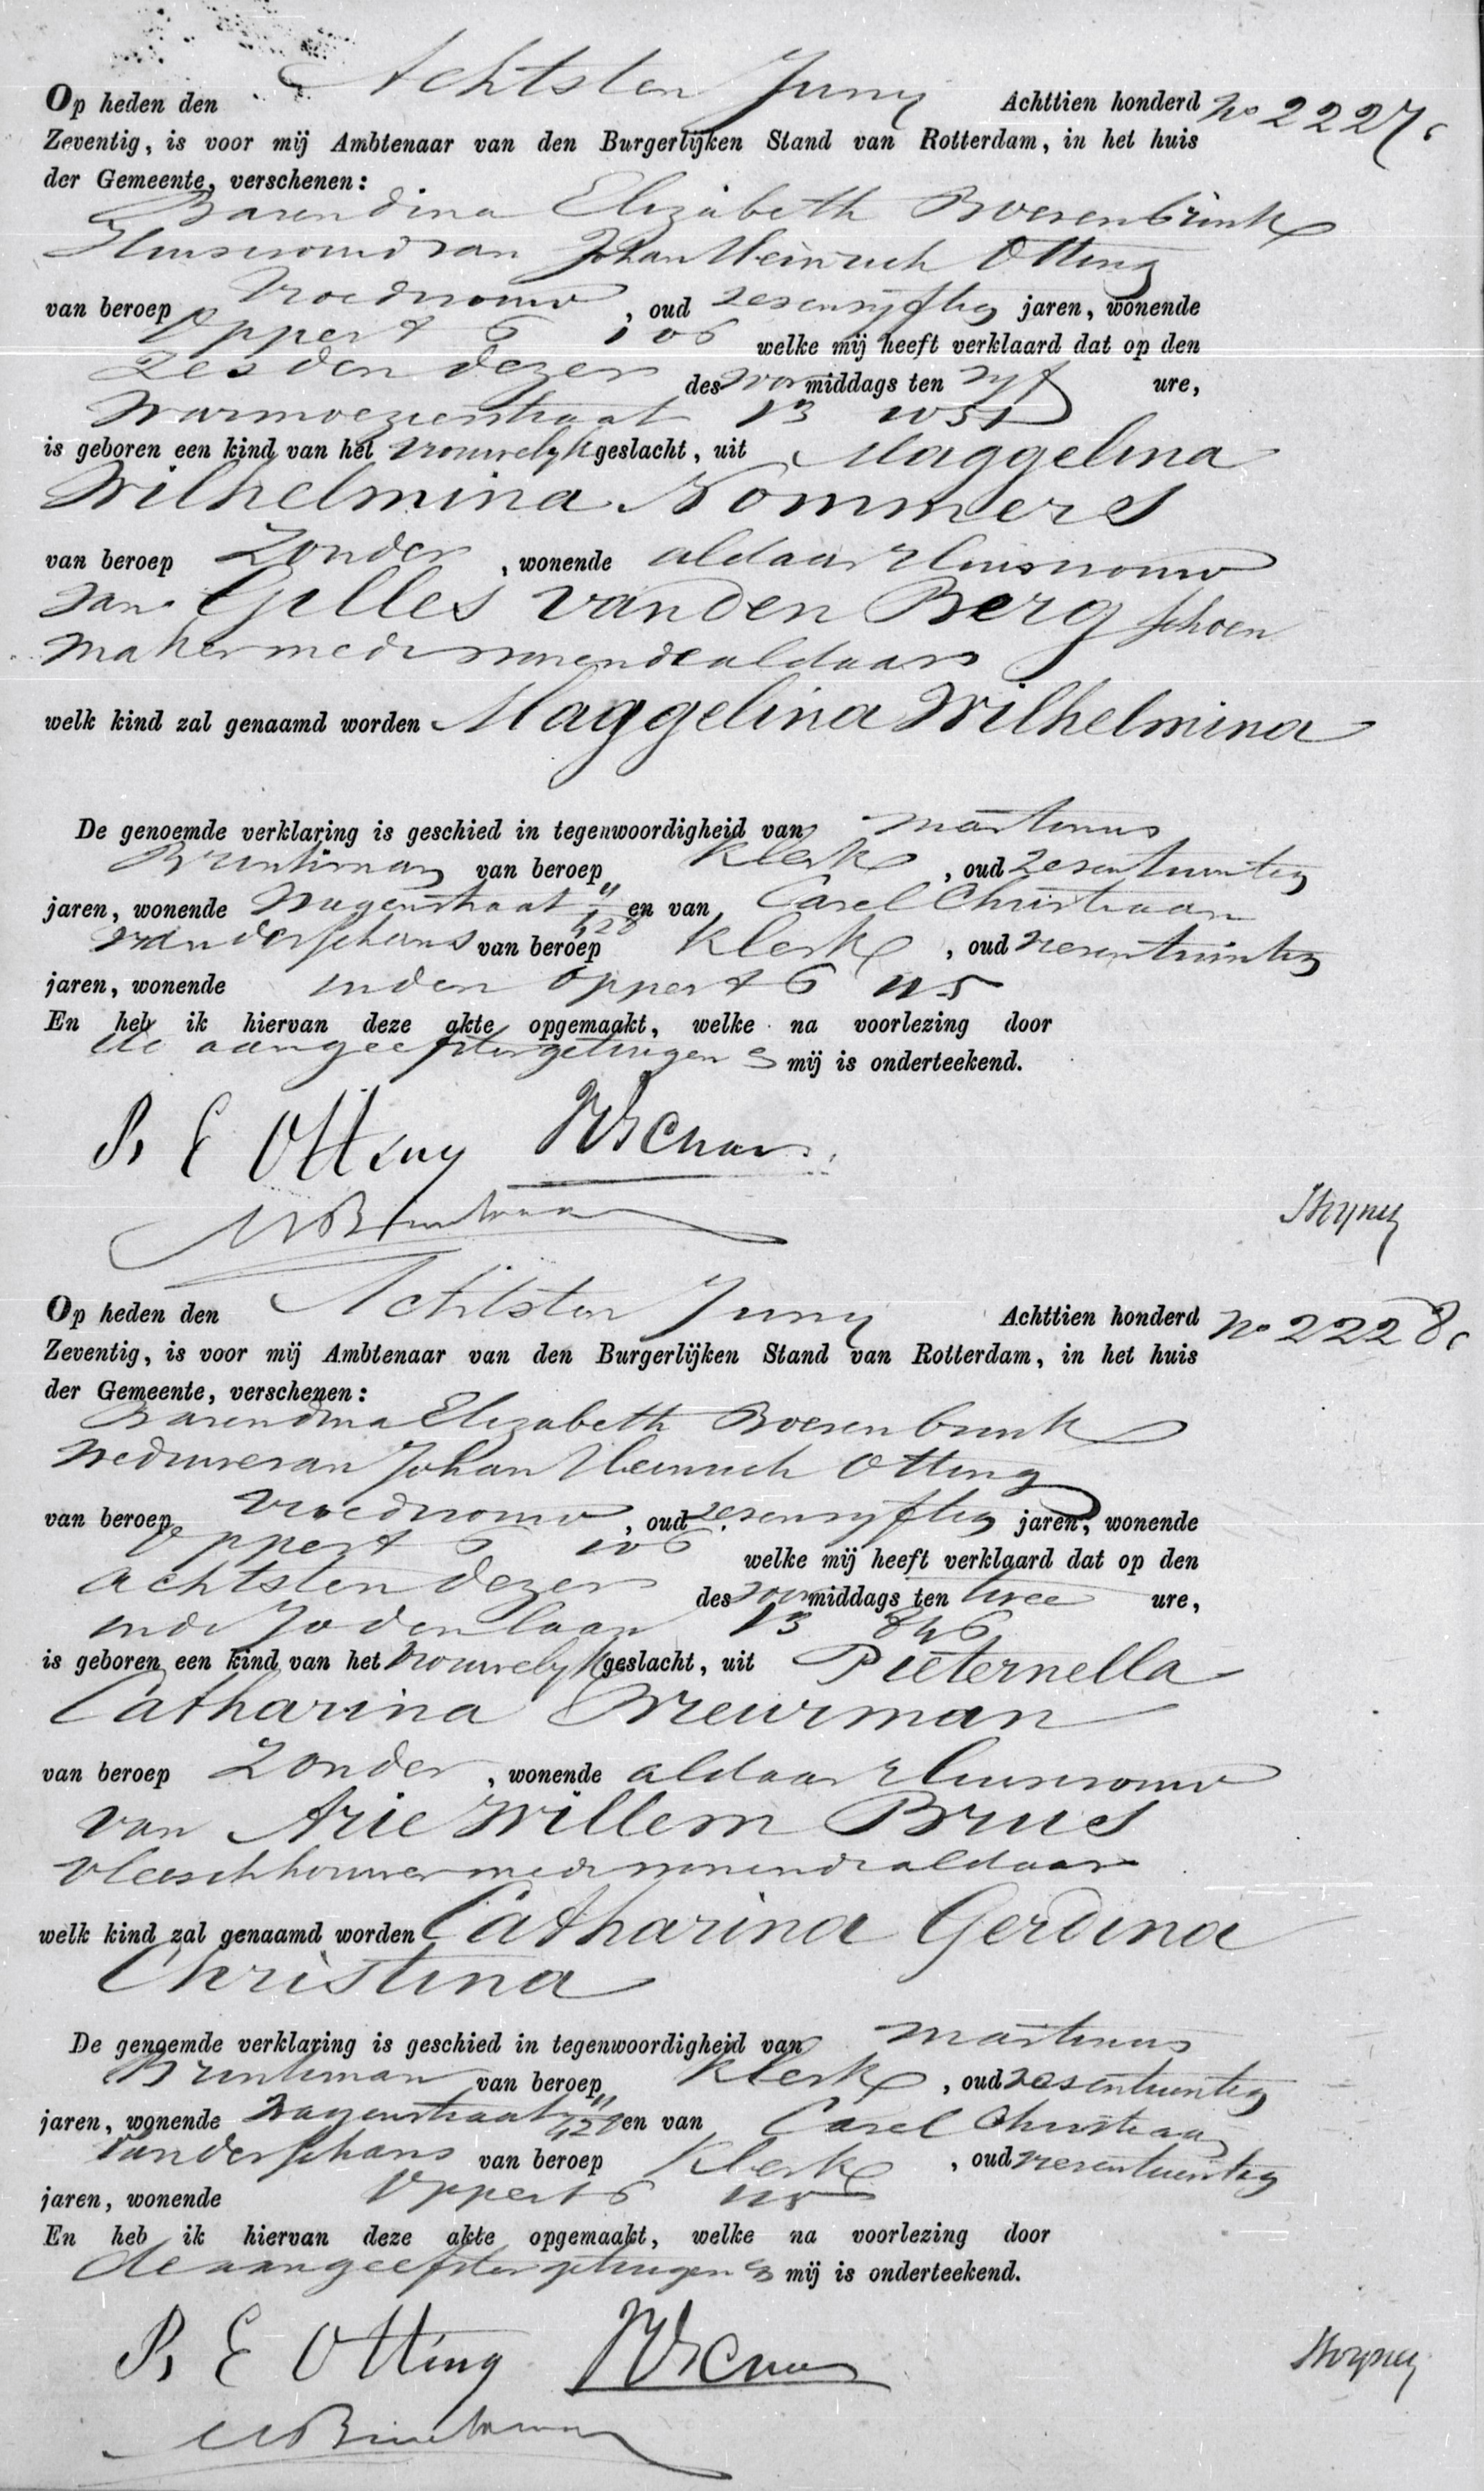 Op heden den Achtsten Juny Achttien honderd No 2227.
Zeventig, is voor mij Ambtenaar van den Burgerlijken Stand van Rotterdam, in het huis
der Gemeente, verschenen:
Barendina Elizabeth Boesenbrink
Huisvrouw van Johan Heinrich Otting
van beroep Vroedvrouw, oud zesenvyftig jaren, wonende
Oppert 6 106 welke mij heeft verklaard dat op den
zesden dezer des voormiddags ten vyf ure,
Warmoezierstraat 13 1051
is geboren een kind van het vrouwelyk geslacht, uit Maggelina
Wilhelmina Nommers
van beroep Zonder, wonende aldaar Huisvrouw
van Gilles van den Berg schoen
maker mede wonende aldaar
welk kind zal genaamd worden Maggelina Wilhelmina
De genoemde verklaring is geschied in tegenwoordigheid van Martinus
Brinkman van beroep Klerk, oud zesentwintig
jaren, wonende Wagenstraat 11 428 en van Carel Christiaan
van der Schans van beroep Klerk, oud zesentwintig
jaren, wonende in den Oppert 6 115
En heb ik hiervan deze akte opgemaakt, welke na voorlezing door
de aangeefster getuigen & mij is onderteekend.
B. E Otting
MBrinkman
Op heden den Achtsten Juny Achttien honderd No 2228.
Zeventig, is voor mij Ambtenaar van den Burgerlijken Stand van Rotterdam, in het huis
der Gemeente, verschenen:
Barendina Elizabeth Boesenbrink
Weduwe van Johan Heinrich Otting
van beroep Vroedvrouw, oud zesenvyftig jaren, wonende
Oppert 6 106 welke mij heeft verklaard dat op den
achtsten dezer des voormiddags ten twee ure,
in de Jodenlaan 13 846
is geboren een kind van het vrouwelyk geslacht, uit Pieternella
Catharina Breurman
van beroep Zonder, wonende aldaar Huisvrouw
van Arie Willem Brus
vleeschhouwer mede wonende aldaar
welk kind zal genaamd worden Catharina Gerdina
Christina
De genoemde verklaring is geschied in tegenwoordigheid van Martinus
Brinkman van beroep Klerk, oud zesentwintig
jaren, wonende Wagenstraat 11 428 en van Carel Christiaan
van der Schans van beroep Klerk, oud zesentwintig
jaren, wonende Oppert 6 115
En heb ik hiervan deze akte opgemaakt, welke na voorlezing door
de aangeefster getuigen & mij is onderteekend.
B. E Otting
MBrinkman